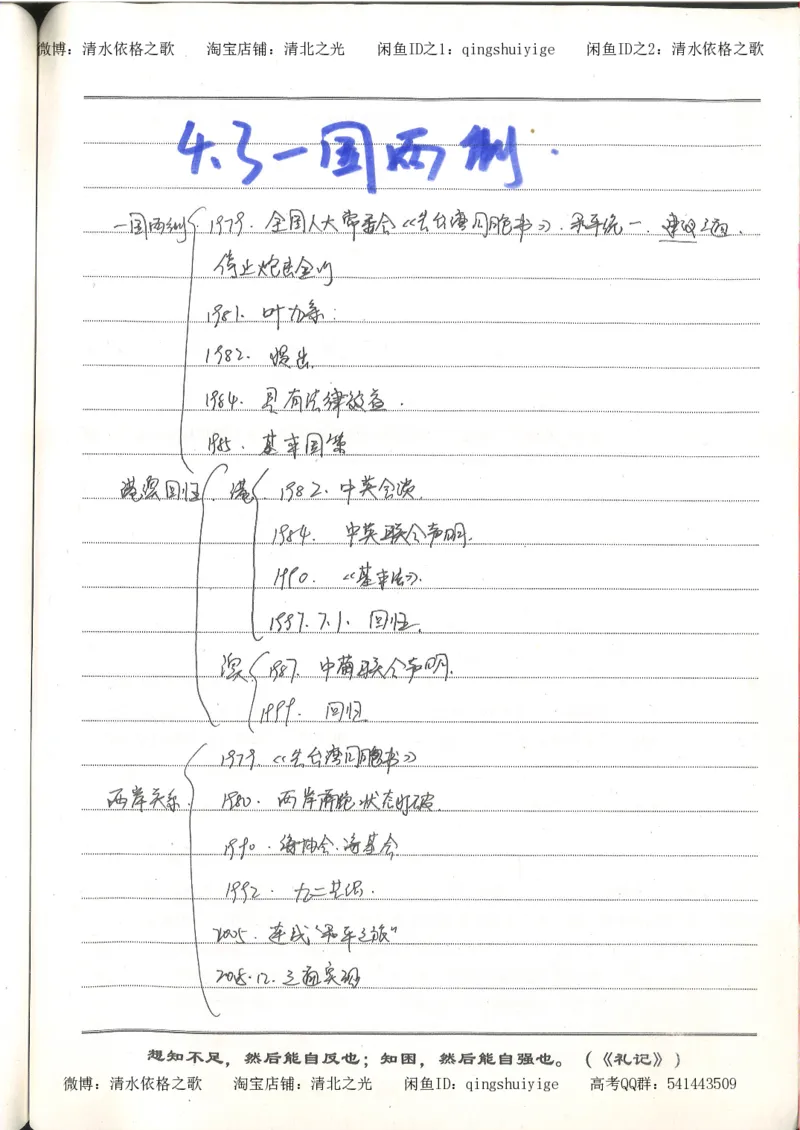 微博：清水依格之歌 淘宝店铺：清北之光 闲鱼ID之1：qingshuiyige 闲鱼ID之2：清水依格之歌
4.3一国两制.
一国两制 1979. 全国人大常委会《告台湾同胞书》. 和平统一. 建议三通.
停止炮击金门
1981. 叶九条：
1982. 提出
1984. 具有法律效益.
1985. 基本国策
港澳回归 港 1982. 中英会谈.
1984. 中英联合声明.
1990. 《基本法》.
1997.7.1. 回归.
澳 1987. 中葡联合声明.
1999. 回归
两岸关系 1979《告台湾同胞书》
1980. 两岸 状态打破.
1990. 海协会.海基会
1992. 九二共识.
2005. 连战“和平之旅”
2008.12. 三通实现
想知不足，然后能自反也；知困，然后能自强也。（《礼记》）
微博：清水依格之歌 淘宝店铺：清北之光 闲鱼ID：qingshuiyige 高考QQ群：541443509